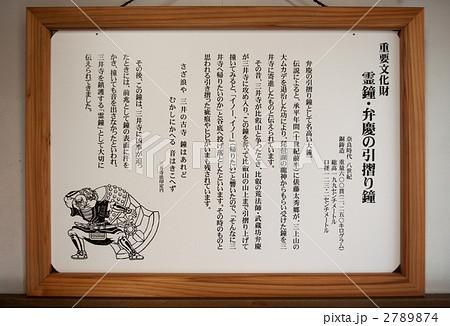 重要文化財
霊鐘・弁慶の引摺り鐘
奈良時代・八世紀
銅鋳造 重量六〇〇貫(二、二五〇キログラム)
総高一九九センチメートル
口径一二三・二センチメートル
弁慶の引摺り鐘として名高い大鐘。
伝説によると、承平年間(十世紀前半)に俵藤太秀郷が、三上山の
大ムカデを退治した功により、琵琶湖の龍神からもらい受けた鐘を三
井寺に寄進したものと伝えられています。
その昔、三井寺が比叡山と争ったとき、比叡の荒法師・武蔵坊弁慶
が三井寺に攻め入り、この鐘を奪って比叡山の山上まで引摺り上げて
撞いてみると、「イノー、イノー」(帰りたい)と響いたので、「そんなに三
井寺へ帰りたいのか」と谷底へ投げ落としたといいます。その時のものと
思われる引き摺った破痕やヒビがいまも残されています。
さざ浪や 三井の古寺 鐘はあれど
むかしにかへる 音はきこへず
その後、この鐘は、三井寺に凶事が
たときには、前兆として鐘の表面に汗を
かき、撞いても音を出さなかったといわれ、
三井寺を鎮護する「霊鐘」として大切に
伝えられてきました。
pixta.jp - 2789874